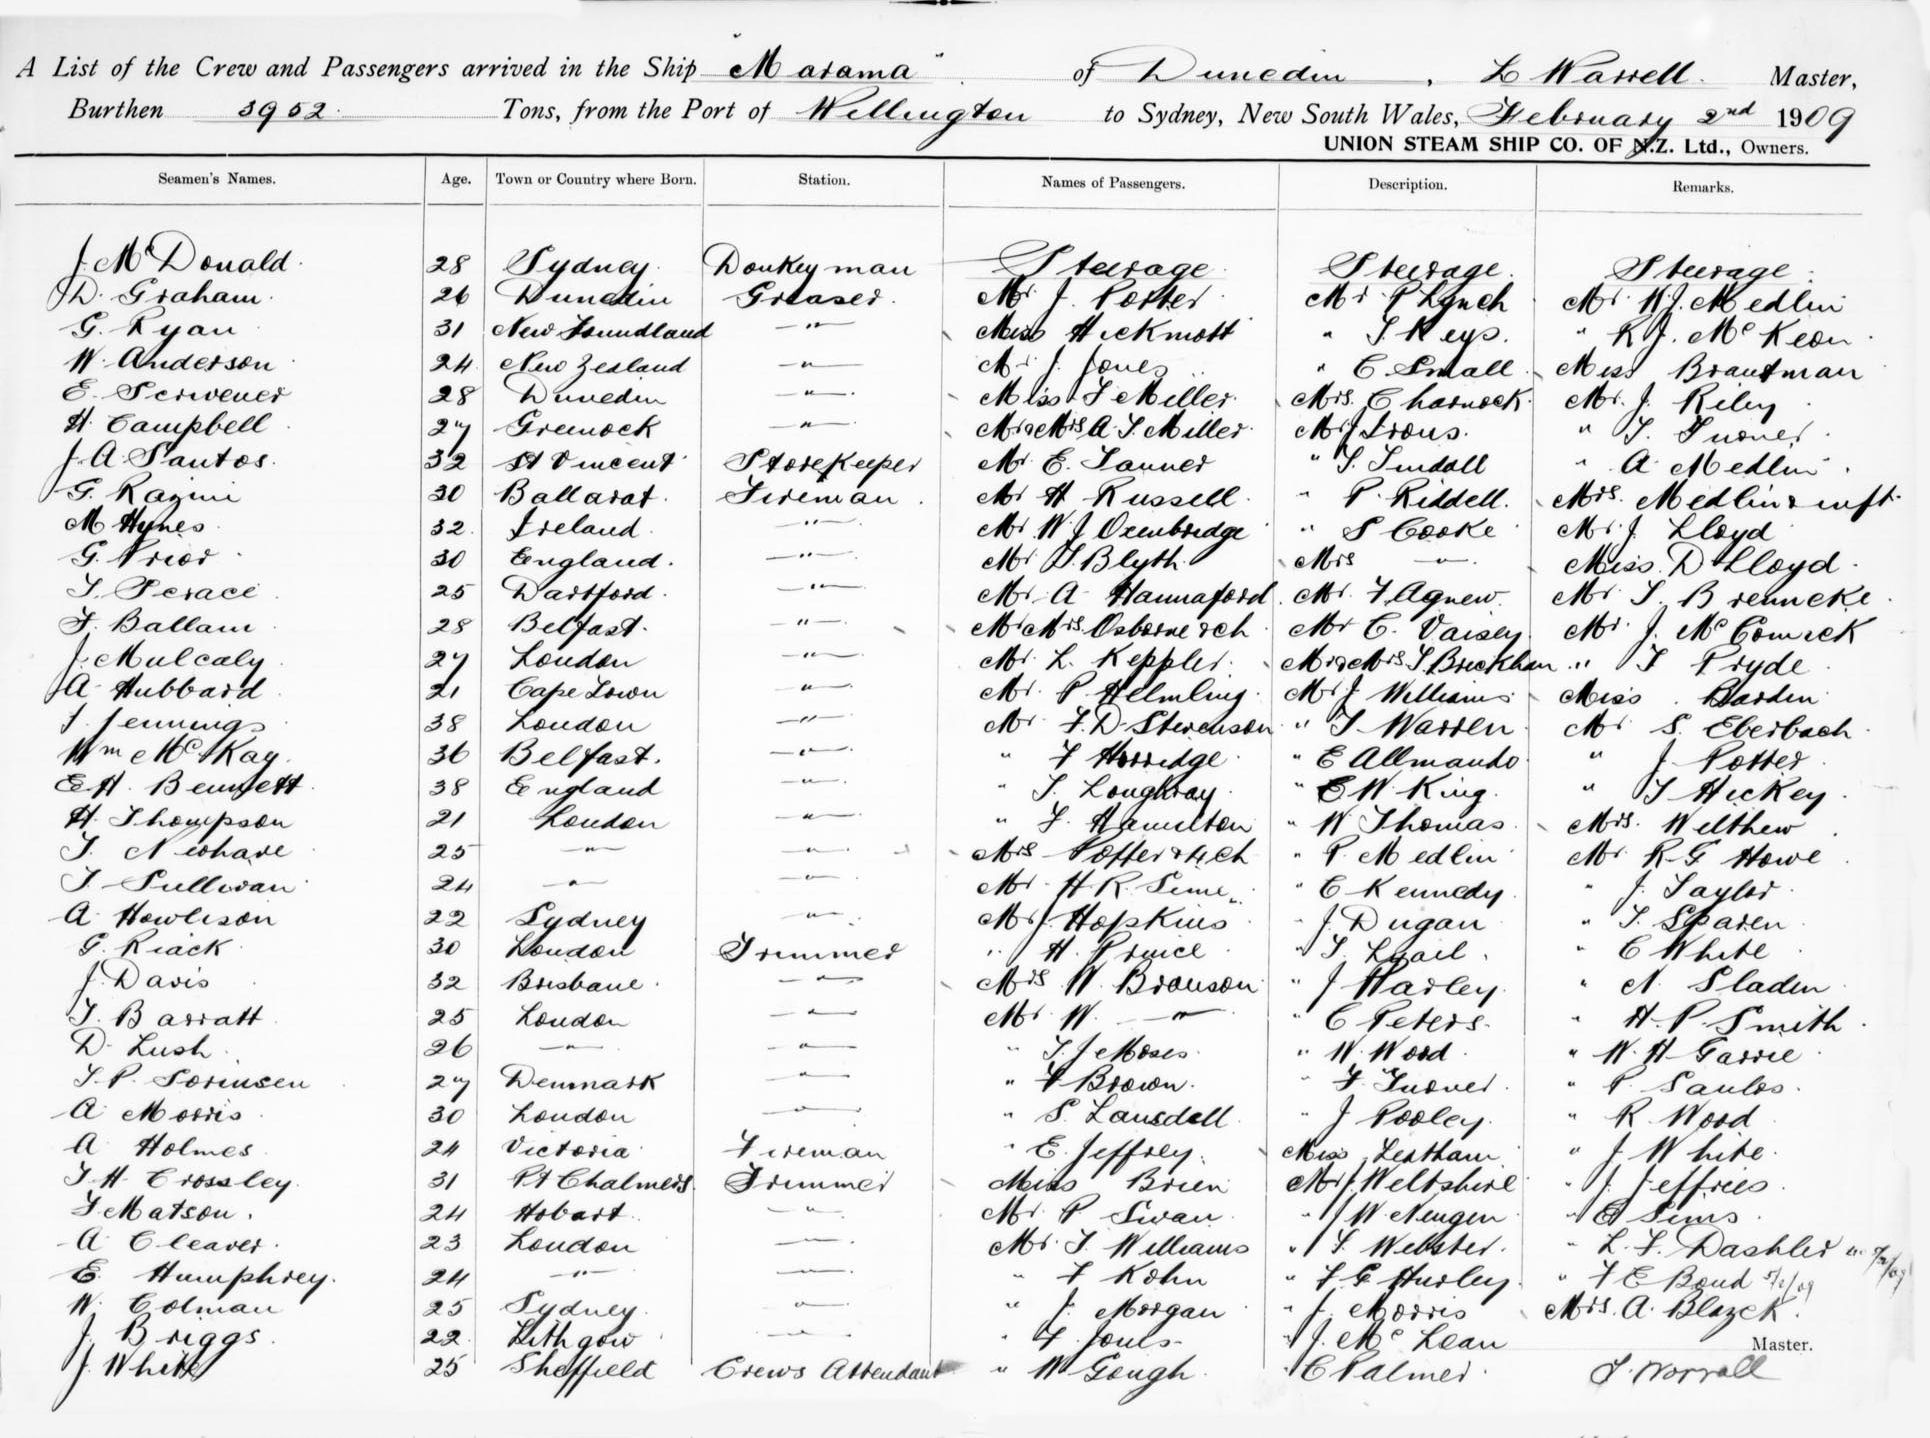 A List of the Crew and Passengers arrived in the Ship "Marama" of Dunedin, L Worrell Master,
Burthen 3952 Tons, from the Port of Wellington to Sydney, New South Wales, February 2nd 1909
UNION STEAM SHIP CO. OF N.Z. Ltd., Owners.
Seamen's Names. Age. Town or Country where Born. Station. Names of Passengers. Description. Remarks.
J. McDonald 28 Sydney Donkeyman Steerage Steerage Steerage
D. Graham 26 Dunedin Greaser Mr J. Porter Mr P Lynch Mr W J. Medlin
G. Ryan 31 New Foundland " Miss Hickmott " T. Keys " R J. McKeon
W. Anderson 24 New Zealand " Mr J. Jones " C Small Miss Brautman
E. Scrivener 28 Dunedin " Miss F Miller Mrs. Charnock Mr. J. Riley
H. Campbell 27 Greenock " Mr & Mrs A. T. Miller Mr J Irons " T. Turner
J. A. Santos 32 St Vincent Storekeeper Mr E. Tanner " T. Tindall " A Medlin
G. Razini 30 Ballarat Fireman Mr H Russell " P. Riddell Mrs. Medlin & inft
M Hynes 32 Ireland " Mr W. J Oxenbridge " S Cooke Mr. J. Lloyd
G. Prior 30 England " Mr T. Blyth Mrs " Miss D Lloyd
T. Scrace 25 Dartford " Mr A Hannaford Mr. F Agnew Mr. T Brenneke
F. Ballam 28 Belfast " Mr Mrs Osborne & ch Mr C. Vaisey Mr. J. McComick
J. Mulcaly 27 London " Mr. L. Keppler Mr & Mrs T Brickhan " T Pryde
A Hubbard 21 Cape Town " Mr. P Helmling Mr J Williams Miss Harden
J. Jennings 38 London " Mr F. D Stevenson " T Warren Mr S. Eberbach
Wm McKay 36 Belfast " " F Horridge " E Allmando " J Potter
E H. Bennett 38 England " " T. Loughray " E W King " T Hickey
H. Thompson 21 London " " F. Hamilton " W Thomas Mrs. Welthew
T. Newhare 25 " " Mrs Potter & 4 ch " P. Medlin Mr R G Howe
T. Sullivan 24 " " Mr. H R. Sime " C Kennedy " J. Taylor
A Howlison 22 Sydney " Mr J. Hopkins " J. Dugan " T. Sparen
G. Riack 30 London Trimmer " H. Prince " T. Lyail " C White
J. Davis 32 Brisbane " Mrs W. Bronson " J Harley " N. Sladen
T. Barratt 25 London " Mr W. " " C Peters " H. P. Smith
D. Lush 26 " " " T. J Moses " W. Wood " W. H Garrie
T. P. Sorensen 27 Denmark " " F Brown " F. Turner " P Saulos
A Morris 30 London " " S. Lansdell " J Pooley " R Wood
A Holmes 24 Victoria Fireman " E. Jeffrey Miss Leatham " J White
T H Crossley 31 Pt Chalmers Trimmer Miss Brien Mr J. Weltshire " J. Jeffries
T Matson 24 Hobart " Mr. P Swan " J W Neugen " E Sims
A Cleaver 23 London " Mr. T. Williams " T. Webster " L. F. Dashler
E. Humphrey 24 " " " F Kohn " F G Hurley " F E Bond 5/2/09
W. Colman 25 Sydney " " J. Morgan " J. Morris Mrs. A. Blazek
J. Briggs 22 Lithgow " " F. Jones " J. McLean Master.
J. White 25 Sheffield Crews Attendant " W Gough " C Palmer J. Worrall